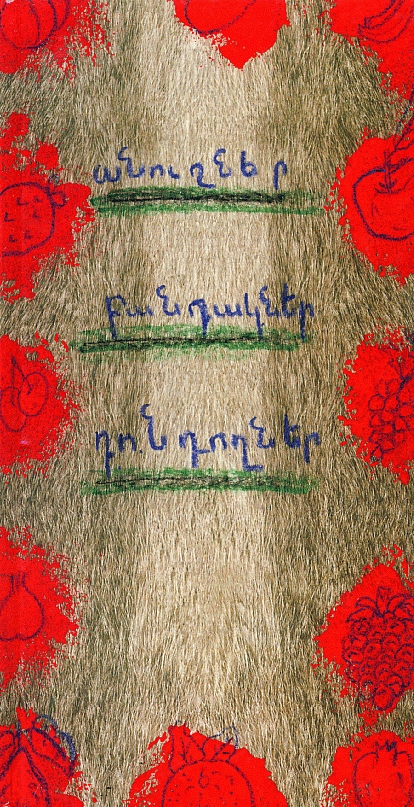 անուշներ
քանդակներ
դոնդողներ